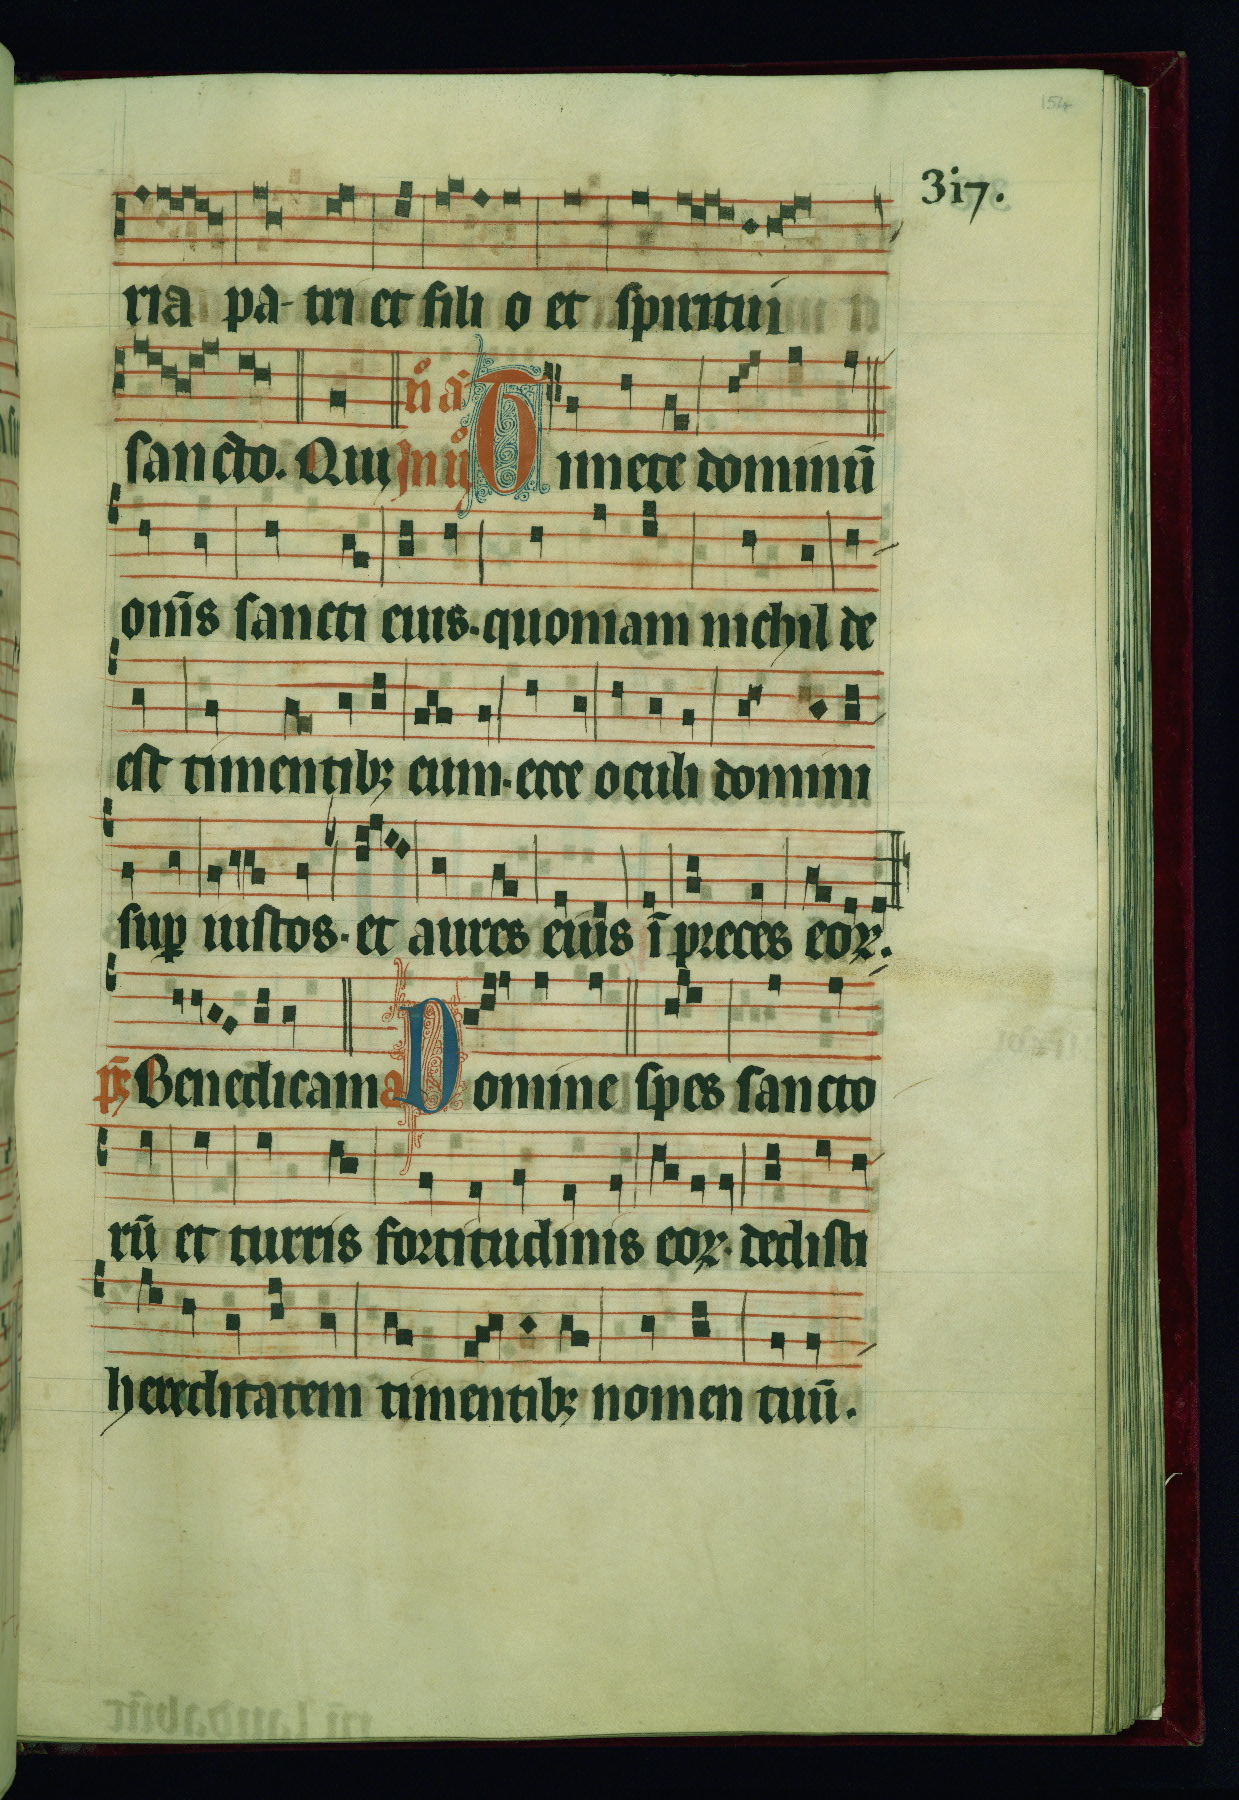 154
317.
ria pa-tri et fili o et spiritui
sancto. Qui In n̄o
n̄ a Timete dominū
om̄s sancti eius. quoniam nichil de
est timentibꝫ eum. ecce oculi domini
suꝑ iustos. et aures eius ī preces eoꝝ.
p̄s Benedicam a Domine spes sancto
rū et turris fortitudinis eoꝝ. dedisti
hereditatem timentibꝫ nomen tuū.